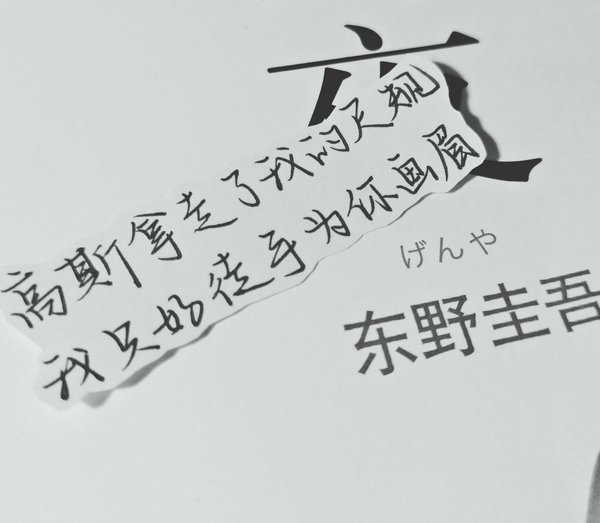 高斯拿走了我的尺规
我只好徒手为你画眉
げんや
东野圭吾